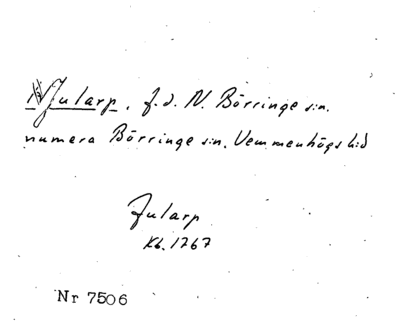 Jularp, f.d. N. Börringe sn.
numera Börringe sn, Vemmenhögs hd
Jularp
Kb. 1767
Nr 7506